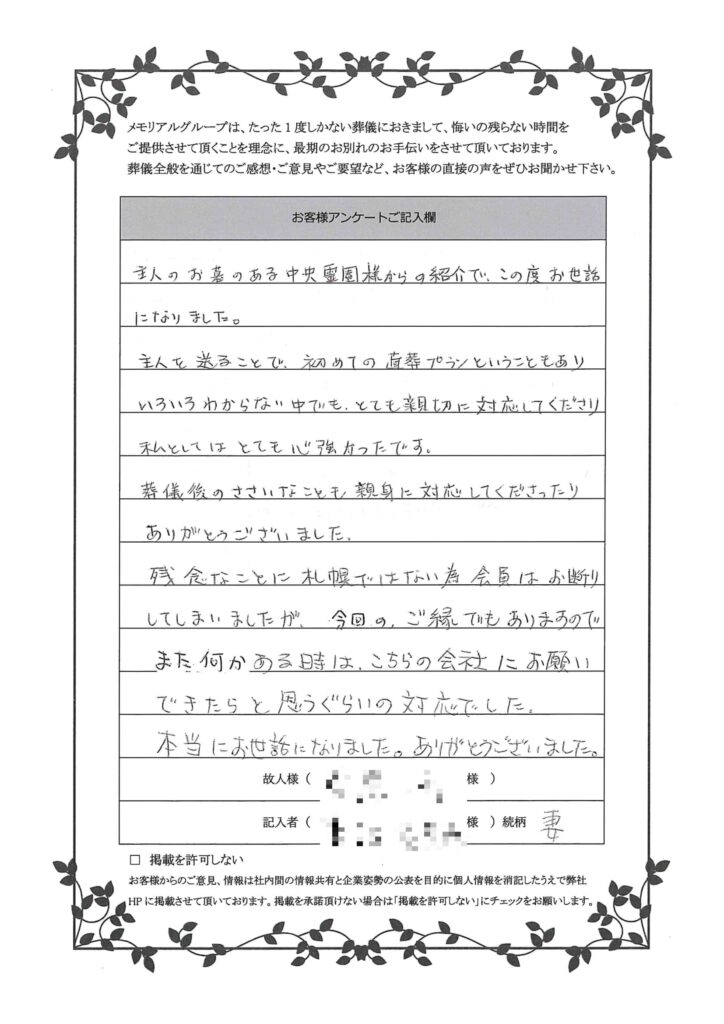 メモリアルグループは、たった1度しかない葬儀におきまして、悔いの残らない時間を
ご提供させて頂くことを理念に、最期のお別れのお手伝いをさせて頂いております。
葬儀全般を通じてのご感想・ご意見やご要望など、お客様の直接の声をぜひお聞かせ下さい。
お客様アンケートご記入欄
主人のお墓のある中央霊園様からの紹介で、この度お世話
になりました。
主人を送ることで、初めての直葬プランということもあり
いろいろわからない中でも、とても親切に対応してくださり
私としてはとても心強かったです。
葬儀後のささいなことも親身に対応してくださったり
ありがとうございました。
残念なことに札幌ではない為会員はお断り
してしまいましたが、今回の、ご縁でもありますので
また何かある時は、こちらの会社にお願い
できたらと思うぐらいの対応でした。
本当にお世話になりました。ありがとうございました。
故人様( 様 )
記入者( 様 )続柄 妻
□ 掲載を許可しない
お客様からのご意見、情報は社内間の情報共有と企業姿勢の公表を目的に個人情報を消記したうえで弊社
HPに掲載させて頂いております。掲載を承諾頂けない場合は「掲載を許可しない」にチェックをお願いします。